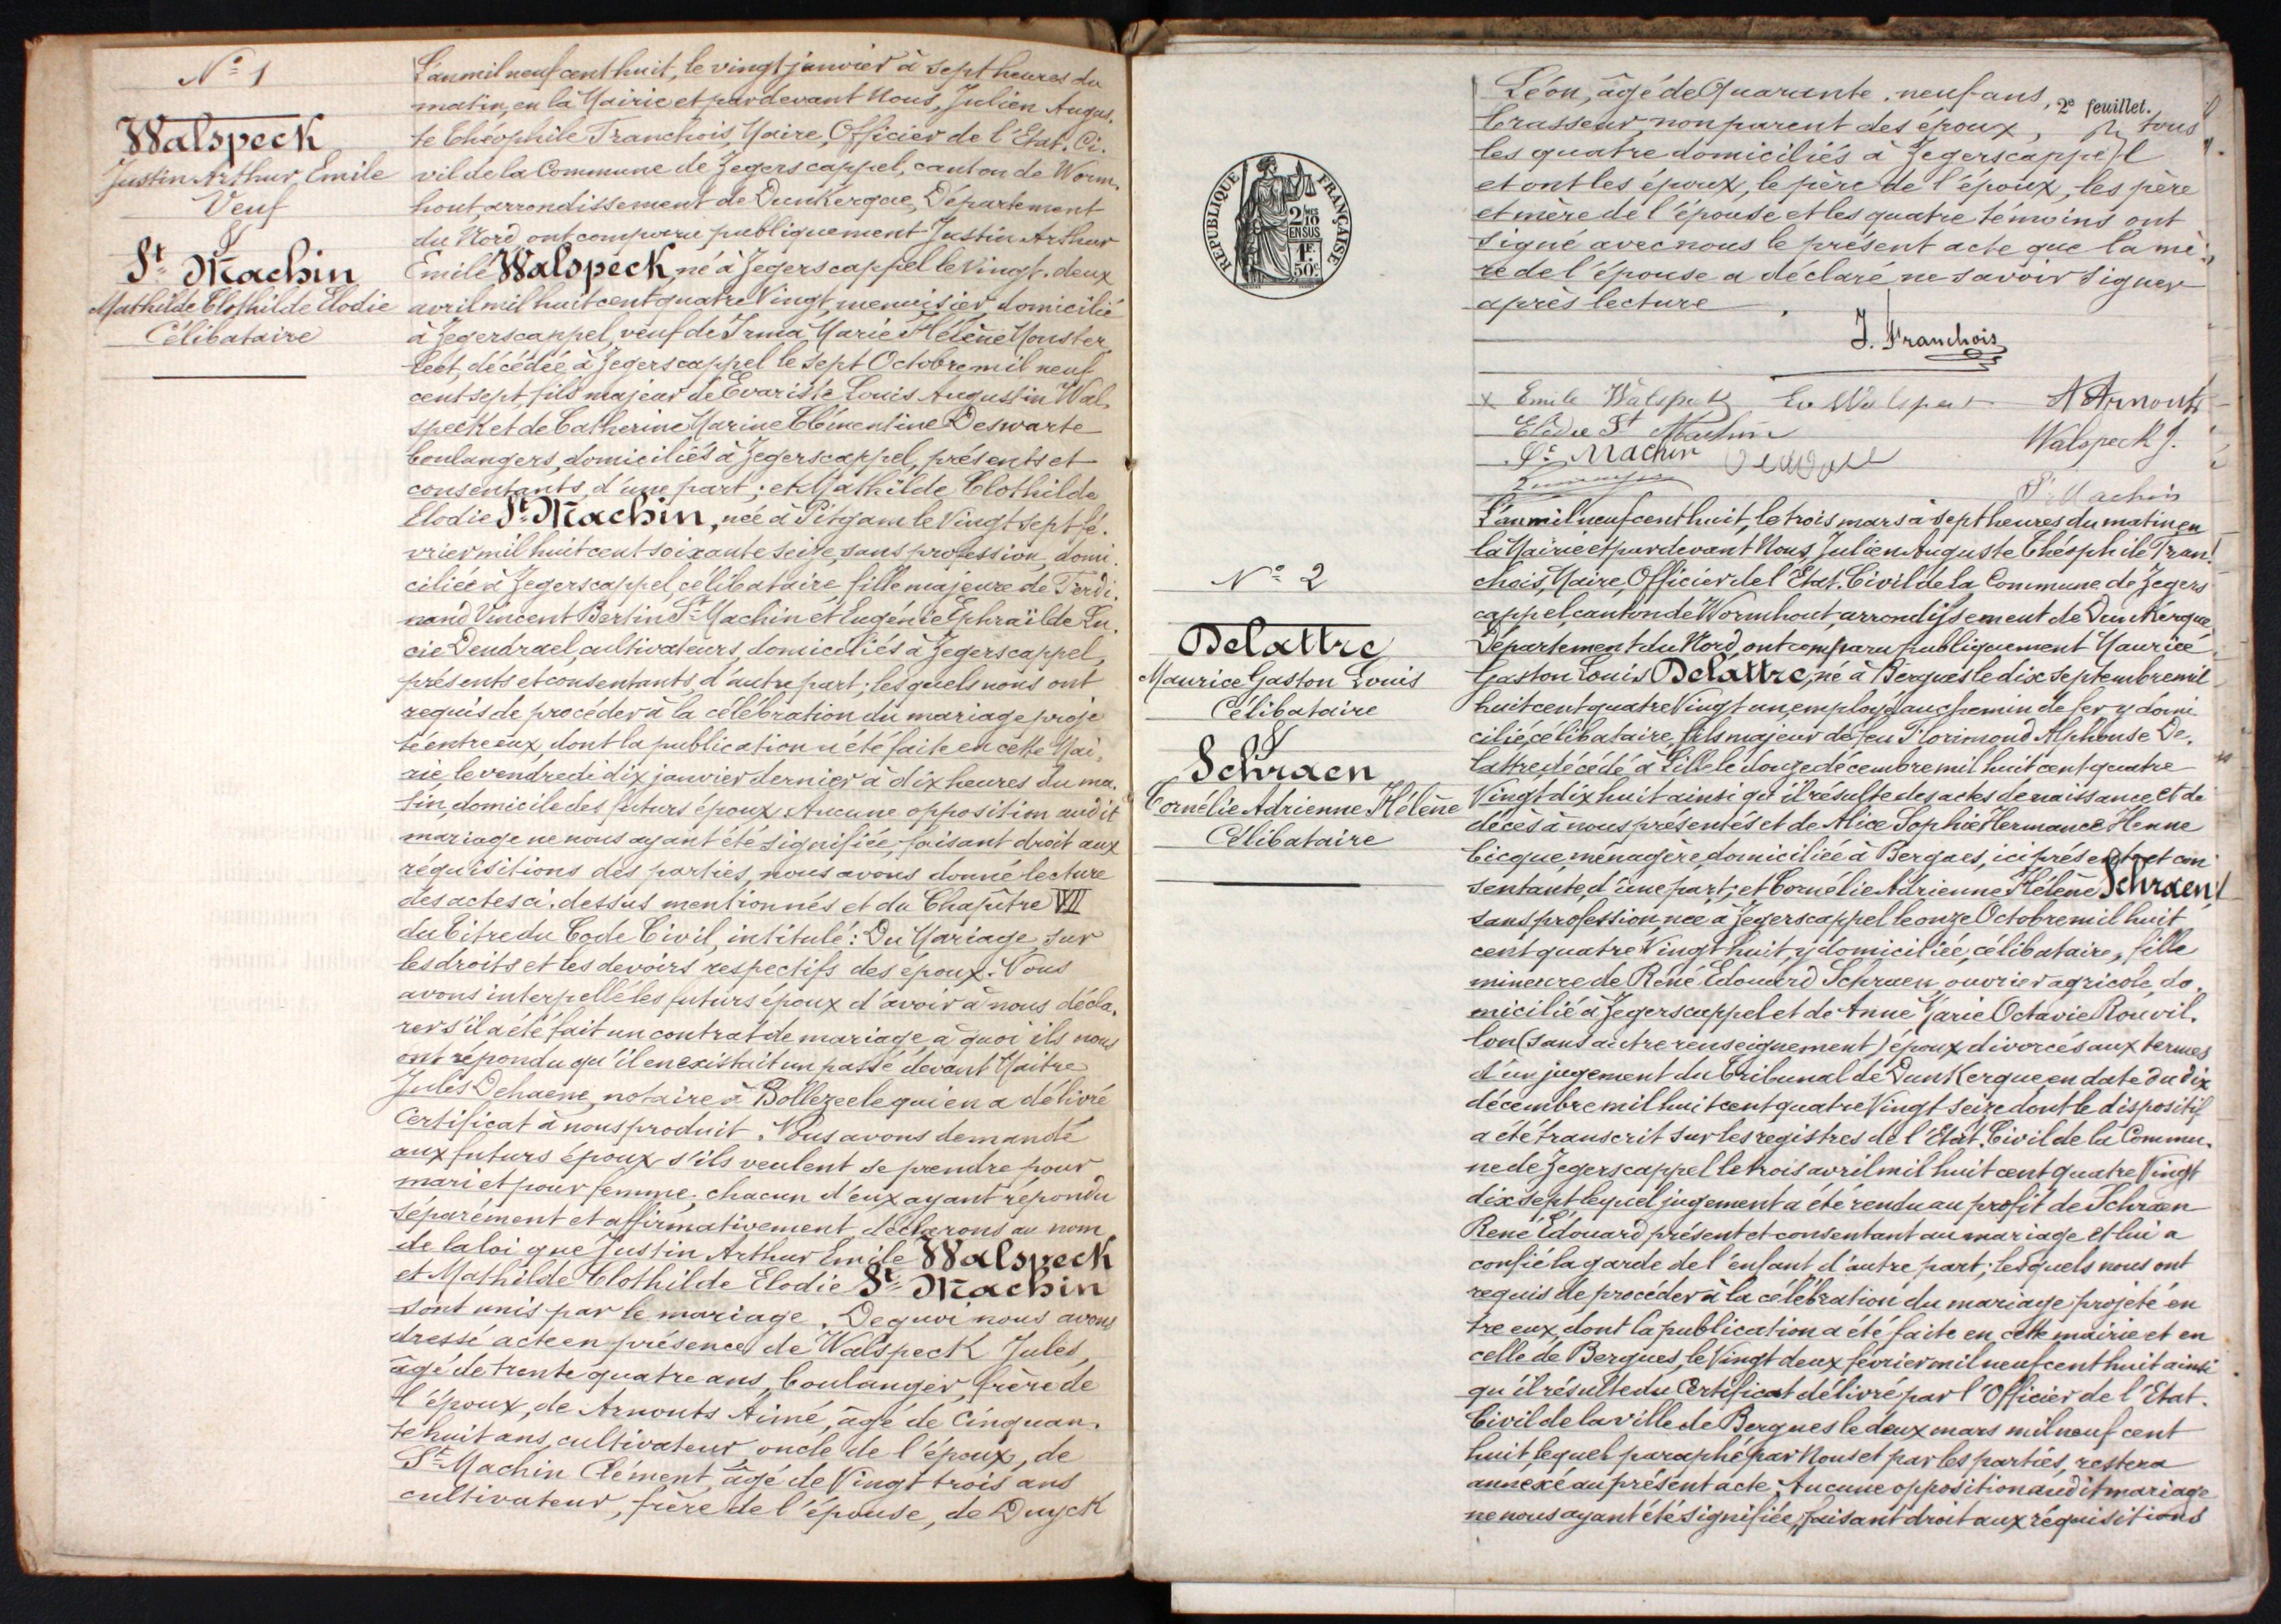 N° 1
Walspeck
Justin Arthur Emile
Veuf
&
St Machin
Mathilde Clothilde Elodie
Célibataire
L'an mil neuf cent huit, le vingt janvier à sept heures du
matin, en la Mairie et pardevant Nous, Julien Augus-
te Théophile Tranchois, Maire, Officier de l'Etat-Ci-
vil de la Commune de Zegerscappel, canton de Worm-
hout arrondissement de Dunkerque, Département
du Nord ont comparu publiquement Justin Arthur
Emile Walspeck, né à Zegerscappel le vingt-deux
avril mil huit cent quatre vingt, menuisier, domicilié
à Zegerscappel, veuf de Irma Marie Hélène Monster
leet, décédée à Zegerscappel le sept Octobre mil neuf
cent sept, fils majeur de Evariste Louis Augustin Wal-
speck et de Catherine Marine Clémentine Deswarte
boulangers, domiciliés à Zegerscappel, présents et
consentants, d'une part; et Mathilde Clothilde
Elodie St Machin, née à Pitgam le vingt sept fé-
vrier mil huit cent soixante seize, sans profession, domi-
ciliée à Zegerscappel, célibataire, fille majeure de Ferdi-
nand Vincent Bertin St Machin et Eugénie Ephraïlde Lu-
cie Dendrael, cultivateurs, domiciliés à Zegerscappel,
présents et consentants, d'autre part; lesquels nous ont
requis de procéder à la célébration du mariage proje
té entre eux, dont la publication a été faite en cette Mai-
rie, le vendredi dix janvier dernier à dix heures du ma-
tin, domicile des futurs époux. Aucune opposition audit
mariage ne nous ayant été signifiée, faisant droit aux
réquisitions des parties, nous avons donné lecture
des actes ci-dessus mentionnés et du Chapitre VII
du Titre du Code Civil, intitulé: Du Mariage, sur
les droits et les devoirs respectifs des époux. Nous
avons interpellé les futurs époux d'avoir à nous décla-
rer s'il a été fait un contrat de mariage, à quoi ils nous
ont répondu qu'il en existait un passé devant Maître
Jules Dehaene, notaire à Bollezeele qui en a délivré
Certificat à nous produit. Nous avons demandé
aux futurs époux s'ils veulent se prendre pour
mari et pour femme, chacun d'eux ayant répondu
séparément et affirmativement déclarons au nom
de la loi que Justin Arthur Emile Walspeck
et Mathilde Clothilde Elodie St Machin
sont unis par le mariage. De quoi nous avons
dressé acte en présence de Walspeck Jules,
âgé de trente quatre ans, boulanger, frère de
l'époux, de Arnouts Aimé, âgé de Cinquan-
te huit ans, cultivateur oncle de l'époux, de
St Machin Clément, âgé de vingt trois ans
cultivateur, frère de l'épouse, de Duyck
2e feuillet.
Léon, âgé de Quarante-neuf ans,
brasseur, non parent des époux, tous
les quatre domiciliés à Zegerscappel
et ont les époux, le père de l'époux, les père
et mère de l'épouse et les quatre témoins ont
signé avec nous le présent acte que la mè-
re de l'épouse a déclaré ne savoir signer
après lecture.
REPUBLIQUE FRANÇAISE
2/10
EN SUS
1F.
50c
J. Tranchois
Emile Walspeck Ev Walspeck A Arnouts
Elodie St Machin
Walspeck J.
St Machin
St Machin
N° 2
Delattre
Maurice Gaston Louis
Célibataire
&
Schraen
Cornélie Adrienne Hélène
Célibataire
L'an mil neuf cent huit, le trois mars à sept heures du matin en
la Mairie et pardevant Nous, Julien Auguste Théophile Tran-
chois, Maire, Officier de l'Etat-Civil de la Commune de Zegers
cappel canton de Wormhout, arrondissement de Dunkerque,
Département du Nord, ont comparu publiquement Maurice
Gaston Louis Delattre, né à Bergues le dix septembre mil
huit cent quatre vingt un, employé au chemin de fer y domi
cilié, célibataire, fils majeur de feu Florimond Alphonse De-
lattre décédé à Lille le douze décembre mil huit cent quatre
Vingt dix huit ainsi qu'il résulte des actes de naissance et de
décès à nous présentés et de Alice Sophie Hermance Henne
bicque, ménagère, domiciliée à Bergues, ici présente et con
sentante, d'une part; et Cornélie Adrienne Hélène Schraen,
sans profession, née à Zegerscappel le onze Octobre mil huit
cent quatre Vingt huit, y domiciliée, célibataire, fille
mineure de René Edouard Schraen, ouvrier agricole, do-
micilié à Zegerscappel et de Anne Marie Octavie Rouvil-
lon (sans autre renseignement) époux divorcés aux termes
d'un jugement du Tribunal de Dunkerque en date du dix
décembre mil huit cent quatre Vingt seize dont le dispositif
a été transcrit sur les registres de l'Etat-Civil de la Commu-
ne de Zegerscappel le trois avril mil huit cent quatre Vingt
dix sept lequel jugement a été rendu au profit de Schraen
René Edouard présent et consentant au mariage et lui a
confié la garde de l'enfant d'autre part; lesquels nous ont
requis de procéder à la célébration du mariage projeté en
tre eux, dont la publication a été faite en cette mairie et en
celle de Bergues, le Vingt deux février mil neuf cent huit ainsi
qu'il résulte du Certificat délivré par l'Officier de l'Etat-
Civil de la ville de Bergues le deux mars mil neuf cent
huit, lequel paraphé par Nous et par les parties, restera
annexé au présent acte; Aucune opposition audit mariage
ne nous ayant été signifiée, faisant droit aux réquisitions